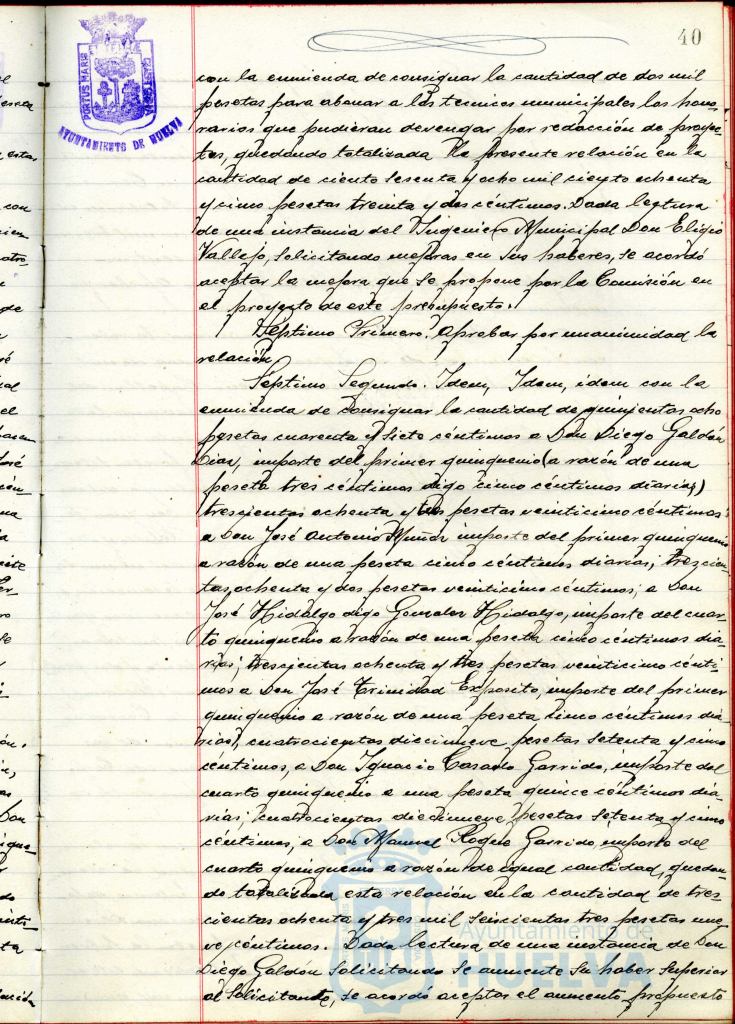 40
PORTUS MARIS
CUSTODIA
AYUNTAMIENTO DE HUELVA
con la enmienda de consignar la cantidad de dos mil
pesetas para abonar a los tecnicos municipales los hono-
rarios que pudieran devengar por redacción de proyec-
tos, quedando totalizada la presente relación en la
cantidad de ciento sesenta y ocho mil ciento ochenta
y cinco pesetas treinta y dos céntimos. Dada lectura
de una instancia del Ingeniero Municipal Don Eligio
Vallejo, solicitando mejoras en sus haberes, se acordó
aceptar la mejora que se propone por la Comisión en
el proyecto de este presupuesto.
Septimo Primero. Aprobar por unanimidad la
relación
Séptimo Segundo. Idem, Idem, idem con la
enmienda de consignar la cantidad de quinientas ocho
pesetas cuarenta y siete céntimos a Don Diego Galdón
Dias, importe del primer quinquenio (a razón de una
peseta tres céntimos digo cinco céntimos diarias)
trescientas ochenta y tres pesetas veinticinco céntimos
a Don José Antonio Muñoz importe del primer quinquenio
a razón de una peseta cinco céntimos diarias; trescien-
tas ochenta y dos pesetas veinticinco céntimos, a Don
José Hidalgo digo Gonzalez Hidalgo, importe del cuar-
to quinquenio a razón de una peseta cinco céntimos dia-
rias; trescientas ochenta y tres pesetas veinticinco cénti-
mos a Don José Trinidad Exposito, importe del primer
quinquenio a razón de una peseta cinco céntimos dia-
rias), cuatrocientas diecinueve pesetas setenta y cinco
centimos, a Don Ignacio Casado Garrido, importe del
cuarto quinquenio a una peseta quince céntimos dia-
rias; cuatrocientas diecinueve pesetas setenta y cinco
céntimos, a Don Manuel Roque Garrido, importe del
cuarto quinquenio a razón de igual cantidad, quedan-
do totalizada esta relación en la cantidad de tres-
cientas ochenta y tres mil seiscientas tres pesetas nue-
ve céntimos. Dada lectura de una instancia de Don
Diego Galdón solicitando se aumente su haber superior
al solicitante, se acordó aceptar el aumento propuesto
Ayuntamiento de
HUELVA